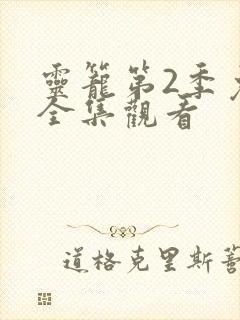 靈籠第2季
全集觀看
道格克里斯